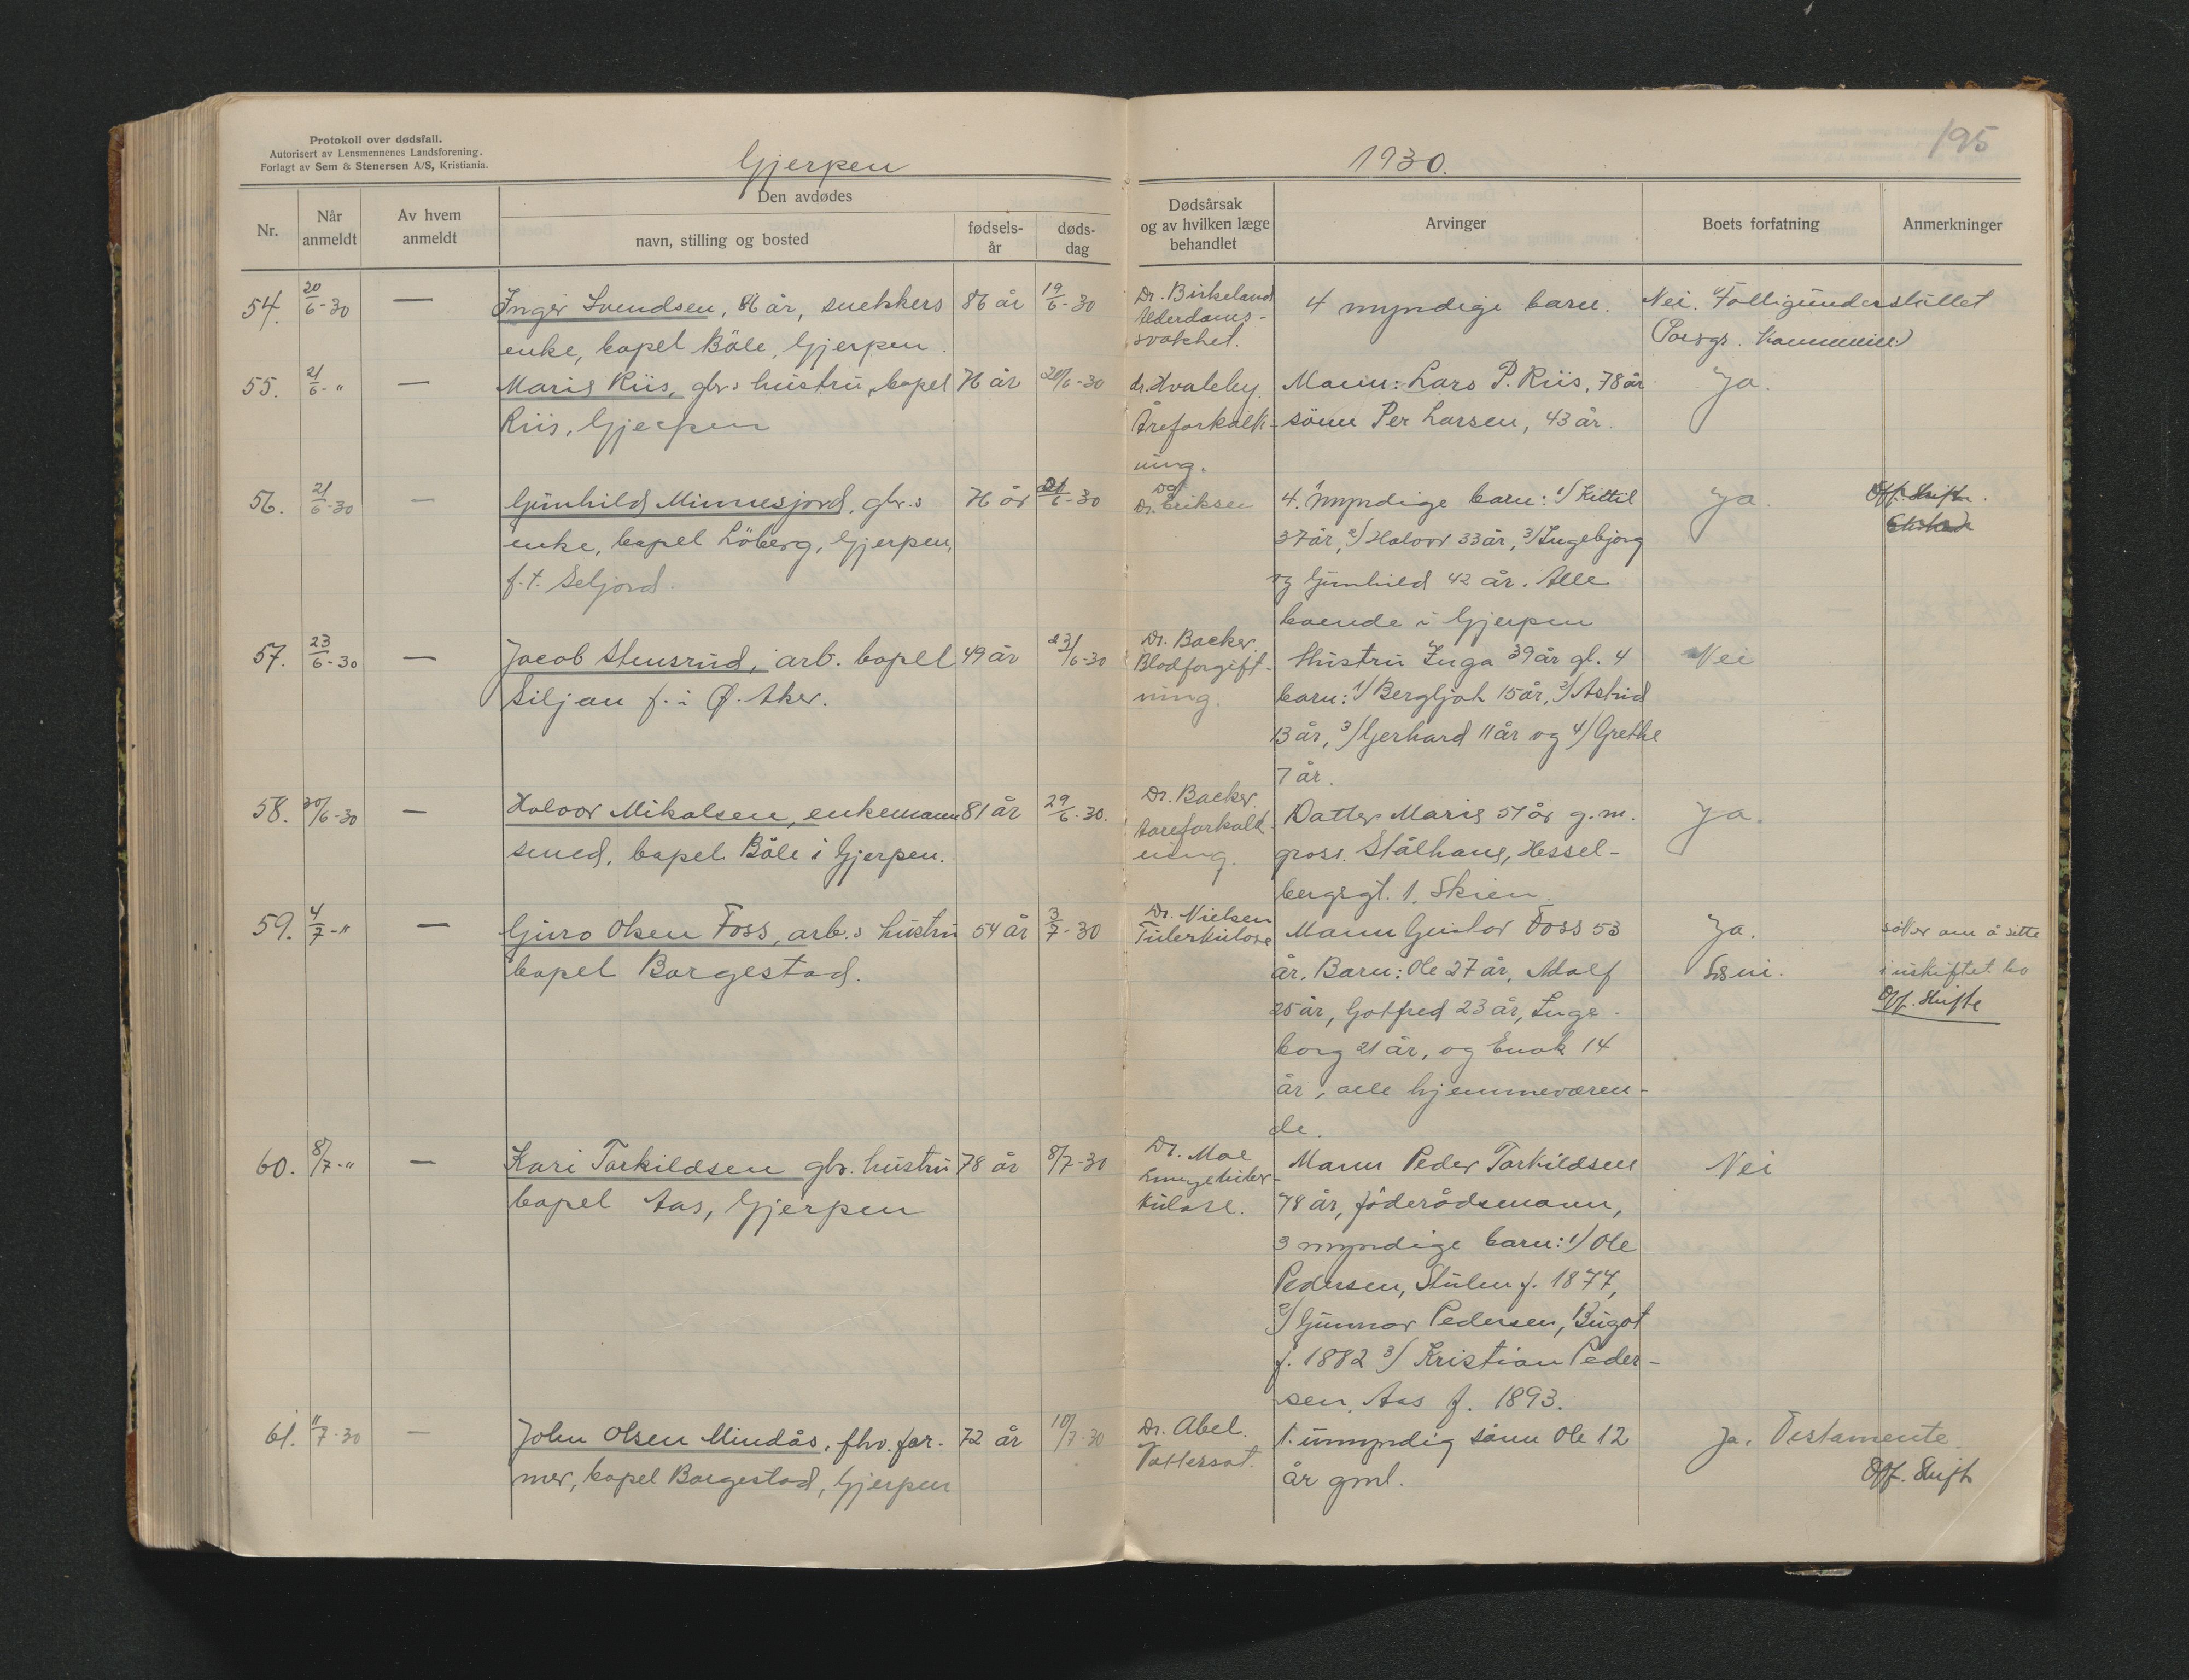 Protokoll over dødsfall.
Autorisert av Lensmennenes Landsforening.
Forlagt av Sem & Stenersen A/S, Kristiania.
Gjerpen
1930.
195
Nr.
Når anmeldt
Av hvem anmeldt
Den avdødes
navn, stilling og bosted
fødsels-
år
døds-
dag
Dødsårsak
og av hvilken læge
behandlet
Arvinger
Boets forfatning
Anmerkninger
54. 20/6-30 — Inger Svendsen, 86 år, snekkers 86 år 19/6-30
enke, bopel Böle, Gjerpen.
Dr. Birkeland
Alderdoms-
svakhet.
4 myndige barn.
Nei. Fattigunderstöttet
(Porsgr. kommune)
55. 21/6-" — Maris Riis, gbr.s hustru, bopel 76 år 20/6-30
Riis, Gjerpen
dr. Hvaleby.
Åreforkalk-
ning.
Mann: Lars P. Riis, 78 år
sönn Per Larsen, 43 år.
Ja.
56. 21/6-30 — Gunhild Minnesjord, gbr.s 76 år 21/6-30
enke, bopel Löberg, Gjerpen,
f. t. Seljord.
og
Dr. Eriksen
4. myndige barn: 1/ Kittil
37 år, 2/ Halvor 33 år, 3/ Ingebjørg
og Gunhild 42 år. Alle
boende i Gjerpen
Ja.
Off. skifte.
57. 23/6-30 — Jacob Stensrud, arb. bopel 49 år 23/6-30
Siljan f. i Ø. Aker.
Dr. Backer.
Blodforgift-
ning.
Hustru Inga 39 år gl. 4
barn: 1/ Bergljot 15 år, 2/ Astrid
13 år, 3/ Gerhard 11 år og 4/ Grethe
7 år.
Nei
58. 30/6-30 — Halvor Mikalsen, enkemann 81 år 29/6-30.
smed, bopel Böle i Gjerpen.
Dr. Backer.
Aareforkalk-
ning.
Datter Maris 51 år g.m.
gross. Stålhane, Hessel-
bergsgt. 1. Skien.
Ja.
59. 4/7-" — Guro Olsen Foss, arb.s hustru 54 år 3/7-30
bopel Borgestad.
Dr. Nielsen
Tuberkulose
Mann Gustav Foss 53
år. Barn: Ole 27 år, Adolf
25 år, Gotfred 23 år, Inge-
borg 21 år, og Enok 14
år, alle hjemmeværen-
de.
Ja.
söker om å sitte
i uskiftet bo
Off. Skifte
60. 8/7-" — Kari Torkildsen gbr. hustru 78 år 8/7-30
bopel Aas, Gjerpen
Dr. Moe
Lungetuber-
kulose.
Mann Peder Torkildsen
78 år, föderådsmann,
3 myndige barn: 1/ Ole
Pedersen, Stulen f. 1877,
2/ Gunnar Pedersen, Bugot
f. 1882 3/ Kristian Peder-
sen, Aas f. 1893.
Nei
61. 11/7-30 — John Olsen Mindås, fhv. far- 72 år 10/7-30
mer, bopel Borgestad, Gjerpen
Dr. Abel.
Vattersot.
1. umyndig sönn Ole 12
år gml.
Ja. Testamente.
Off. Skifte